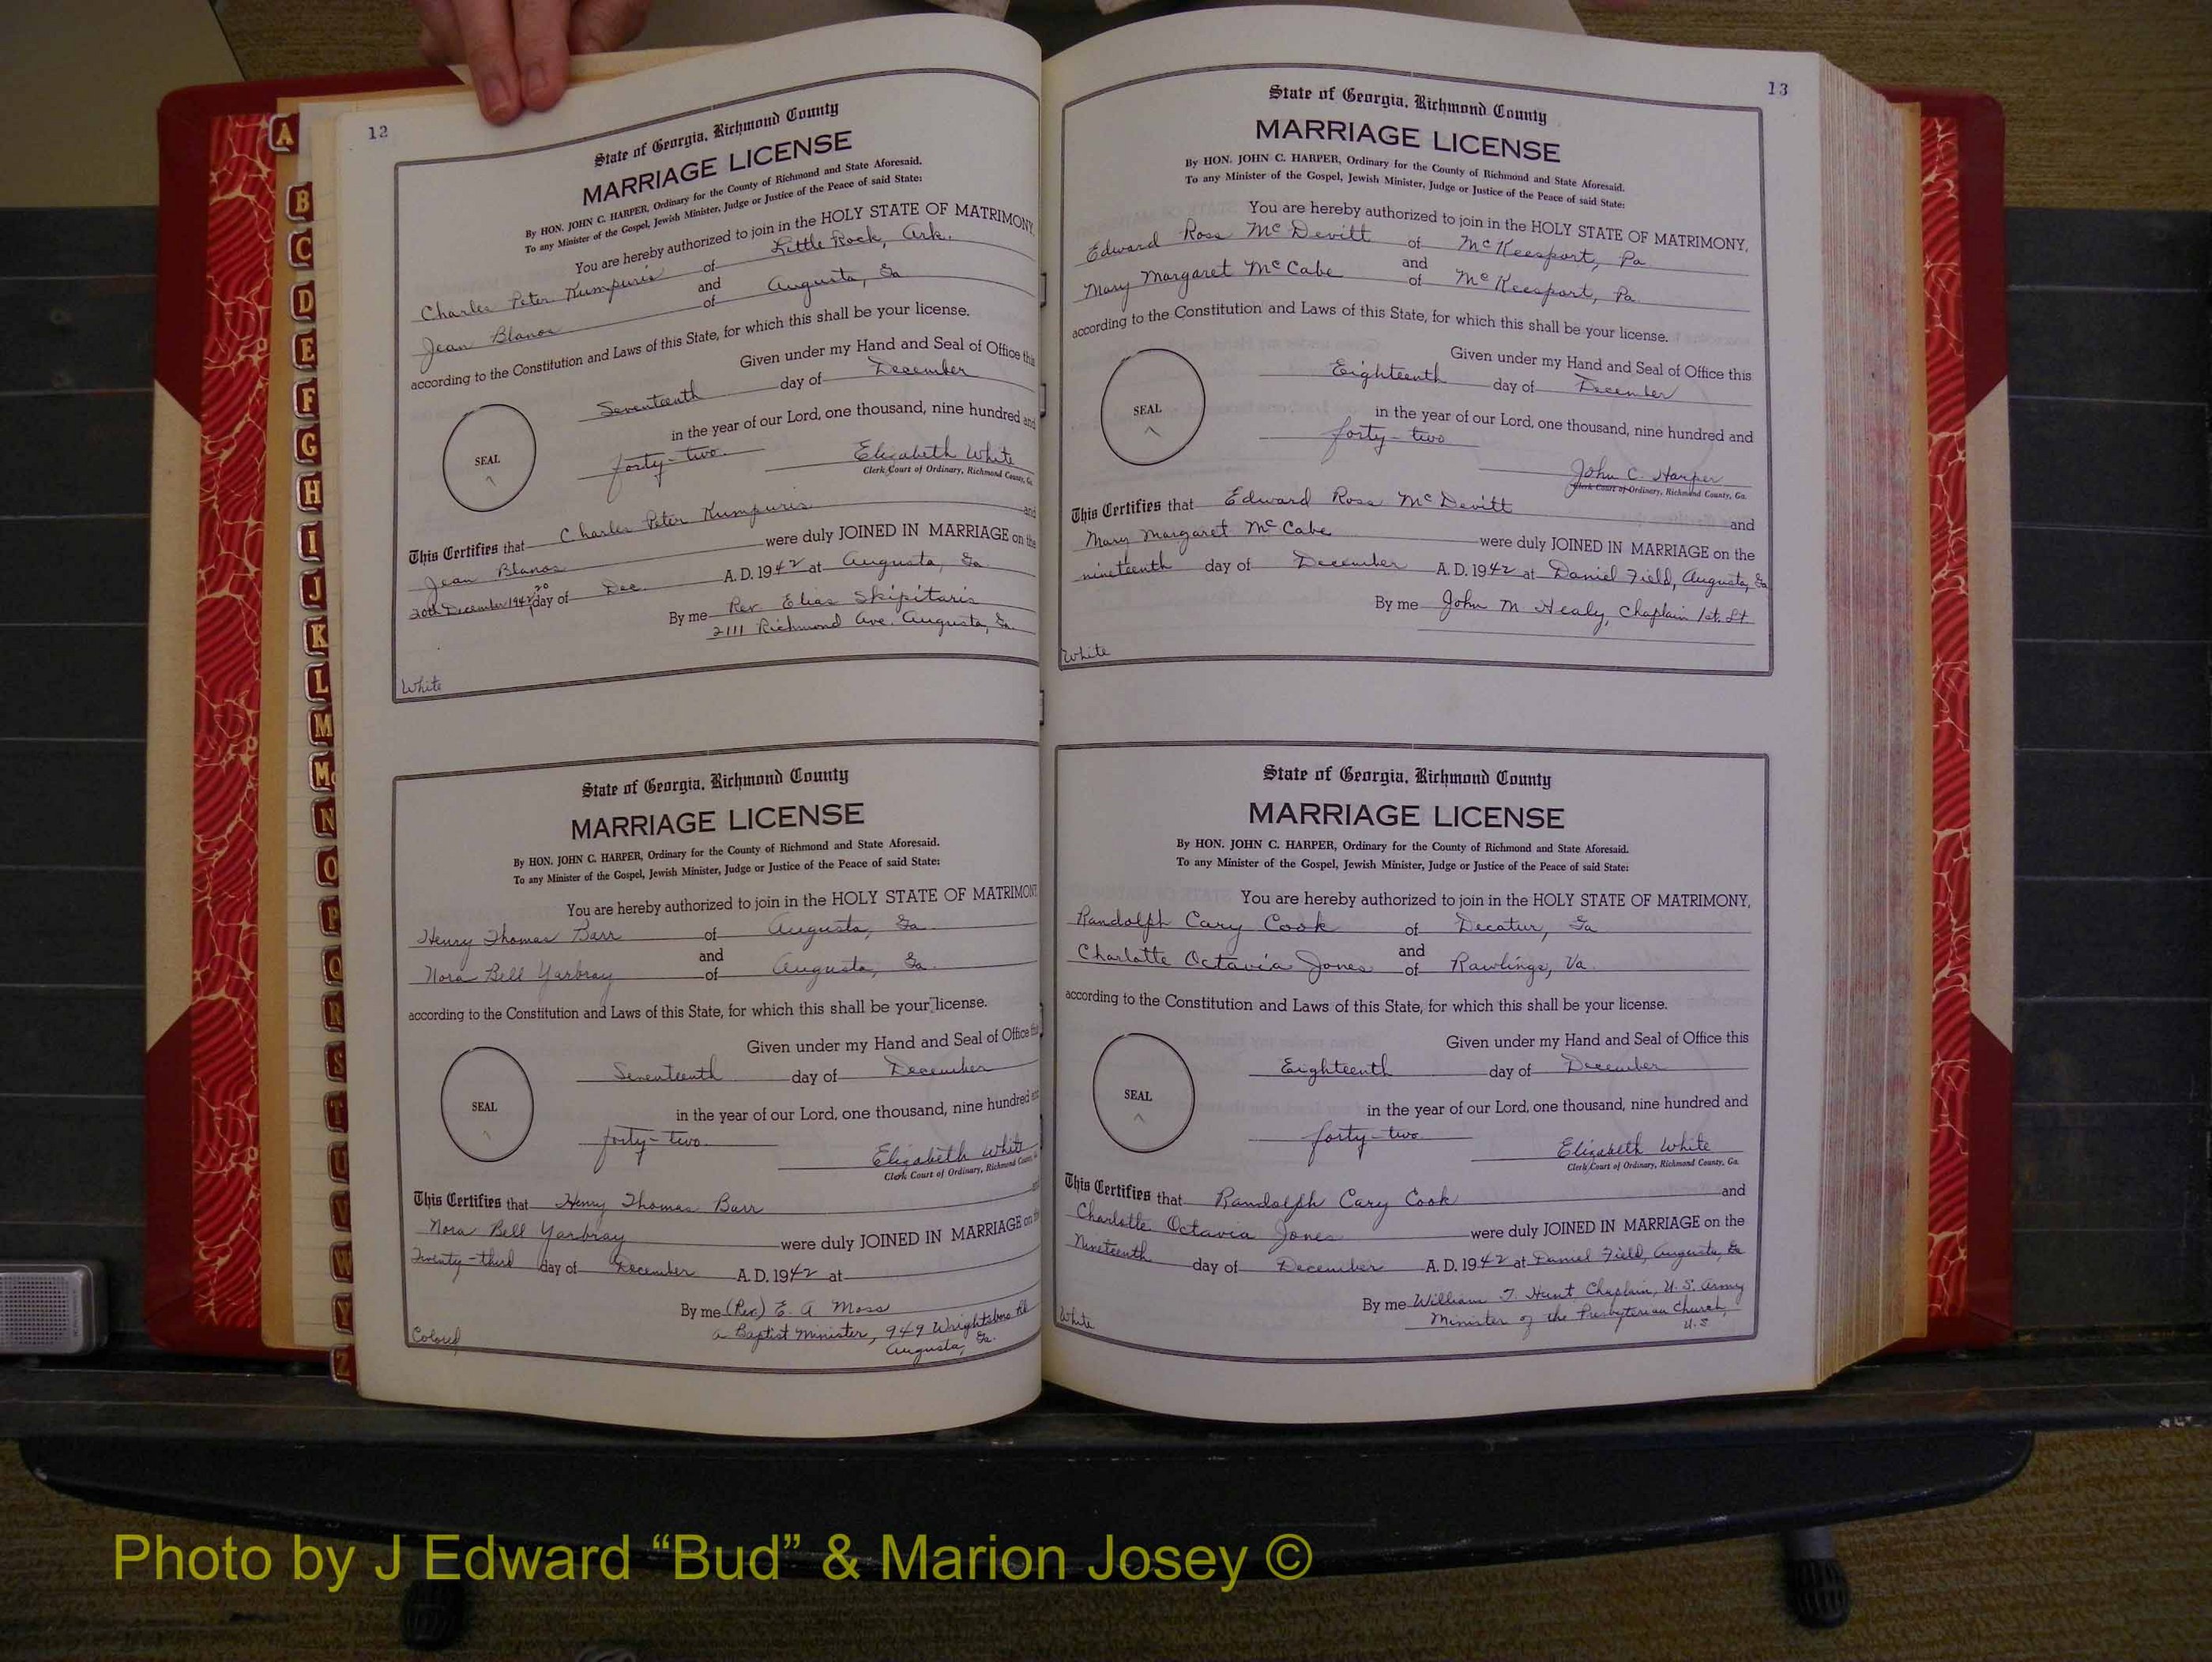 12
State of Georgia, Richmond County
MARRIAGE LICENSE
By HON. JOHN C. HARPER, Ordinary for the County of Richmond and State Aforesaid.
To any Minister of the Gospel, Jewish Minister, Judge or Justice of the Peace of said State:
You are hereby authorized to join in the HOLY STATE OF MATRIMONY,
Charles Peter Kumpuris of Little Rock, Ark.
and
Jean Blanos of Augusta, Ga
according to the Constitution and Laws of this State, for which this shall be your license.
Given under my Hand and Seal of Office this
Seventeenth day of December
in the year of our Lord, one thousand, nine hundred and
SEAL
forty-two
Elizabeth White
Clerk Court of Ordinary, Richmond County, Ga.
This Certifies that Charles Peter Kumpuris and
Jean Blanos were duly JOINED IN MARRIAGE on the
20th December 1942 20 day of Dec. A. D. 1942 at Augusta, Ga
By me Rev Elias Skipitaris
2111 Richmond Ave. Augusta, Ga.
White
State of Georgia, Richmond County
MARRIAGE LICENSE
By HON. JOHN C. HARPER, Ordinary for the County of Richmond and State Aforesaid.
To any Minister of the Gospel, Jewish Minister, Judge or Justice of the Peace of said State:
You are hereby authorized to join in the HOLY STATE OF MATRIMONY,
Henry Thomas Barr of Augusta, Ga.
and
Nora Bell Yarbray of Augusta, Ga.
according to the Constitution and Laws of this State, for which this shall be your license.
Given under my Hand and Seal of Office this
Seventeenth day of December
in the year of our Lord, one thousand, nine hundred and
SEAL
forty-two
Elizabeth White
Clerk Court of Ordinary, Richmond County
This Certifies that Henry Thomas Barr and
Nora Bell Yarbray were duly JOINED IN MARRIAGE on
Twenty-third day of December A. D. 1942 at
By me (Rev) E. A Moss
a Baptist Minister, 949 Wrightsboro Rd
Augusta, Ga.
Colored
13
State of Georgia, Richmond County
MARRIAGE LICENSE
By HON. JOHN C. HARPER, Ordinary for the County of Richmond and State Aforesaid.
To any Minister of the Gospel, Jewish Minister, Judge or Justice of the Peace of said State:
You are hereby authorized to join in the HOLY STATE OF MATRIMONY,
Edward Ross McDevitt of McKeesport, Pa
and
Mary Margaret McCabe of McKeesport, Pa.
according to the Constitution and Laws of this State, for which this shall be your license.
Given under my Hand and Seal of Office this
Eighteenth day of December
in the year of our Lord, one thousand, nine hundred and
SEAL
forty-two
John C. Harper
Clerk Court of Ordinary, Richmond County, Ga.
This Certifies that Edward Ross McDevitt and
Mary Margaret McCabe were duly JOINED IN MARRIAGE on the
nineteenth day of December A. D. 1942 at Daniel Field, Augusta, Ga
By me John M Healy, Chaplain 1st. Lt.
White
State of Georgia, Richmond County
MARRIAGE LICENSE
By HON. JOHN C. HARPER, Ordinary for the County of Richmond and State Aforesaid.
To any Minister of the Gospel, Jewish Minister, Judge or Justice of the Peace of said State:
You are hereby authorized to join in the HOLY STATE OF MATRIMONY,
Randolph Cary Cook of Decatur, Ga
and
Charlotte Octavia Jones of Rawlings, Va.
according to the Constitution and Laws of this State, for which this shall be your license.
Given under my Hand and Seal of Office this
Eighteenth day of December
in the year of our Lord, one thousand, nine hundred and
SEAL
forty-two
Elizabeth White
Clerk Court of Ordinary, Richmond County, Ga.
This Certifies that Randolph Cary Cook and
Charlotte Octavia Jones were duly JOINED IN MARRIAGE on the
Nineteenth day of December A. D. 1942 at Daniel Field, Augusta, Ga
By me William T. Hunt Chaplain, U. S. Army
Minister of the Presbyterian Church,
U.S
White
A
B
C
D
E
F
G
H
I
J
K
L
M
Mc
N
O
P
Q
R
S
T
U
V
W
Y
Z
Photo by J Edward “Bud” & Marion Josey ©